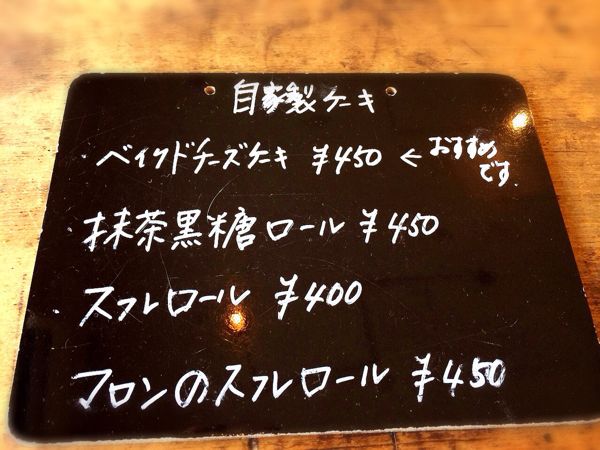 自家製ケーキ
ベイクドチーズケーキ ¥450 ← おすすめ
です
抹茶黒糖ロール ¥450
スフレロール ¥400
マロンのスフレロール ¥450